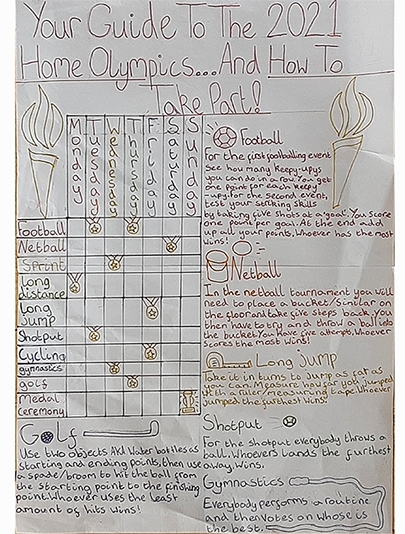 Your Guide To The 2021
Home Olympics...And How To
Take Part!
Monday Tuesday Wednesday Thursday Friday Saturday Sunday
Football
Netball
Sprint
Long
distance
Long
Jump
Shotput
Cycling
gymnastics
golf
Medal
ceremony
Football
For the first footballing event
See how many keepy-upys
you can do in a row. You get
one point for each keepy
-upy. for the second event,
test your striking skills
by taking five shots at a goal. You score
one point per goal. At the end add
up all your points. Whoever has the most
wins!
Netball
In the netball tournament you will
need to place a bucket/similar on
the floor and take five steps back. you
then have to try and throw a ball into
the bucket. You have five attempts. Whoever
scores the most wins!
Long jump
Take it in turns to jump as far as
you can. Measure how far you jumped
with a ruler/measuring tape. Whoever
jumped the furthest wins.
Shotput
For the shotput everybody throws a
ball. Whoever's lands the furthest
away, wins.
Gymnastics
Everybody performs a routine
and then votes on whose is
the best.
Golf
Use two objects AKA Water bottles as
starting and ending points, then use
a spade/broom to hit the ball from
the starting point to the finishing
point. Whoever uses the least
amount of hits wins!